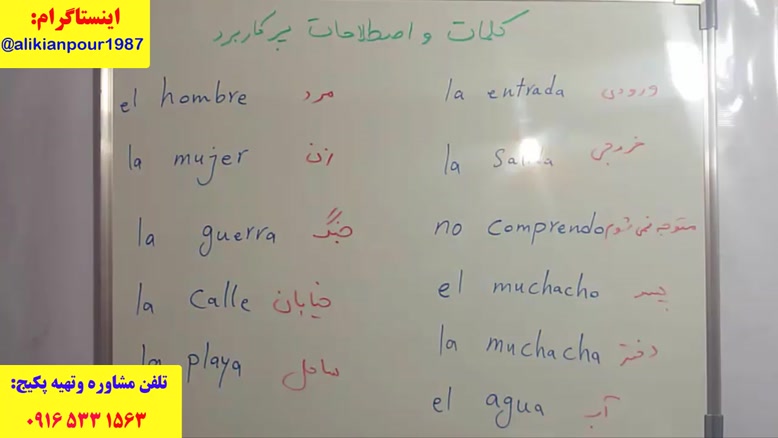 اینستاگرام:
@alikianpour1987
کلمات و اصطلاحات پرکاربرد
el hombre مرد
la mujer زن
la guerra جنگ
la calle خیابان
la playa ساحل
la entrada ورودی
la خروجی
no comprendo متوجه نمی شوم
el muchacho پسر
la muchacha دختر
el agua آب
تلفن مشاوره وتهیه پکیج:
۰۹۱۶ ۵۳۳ ۱۵۶۳